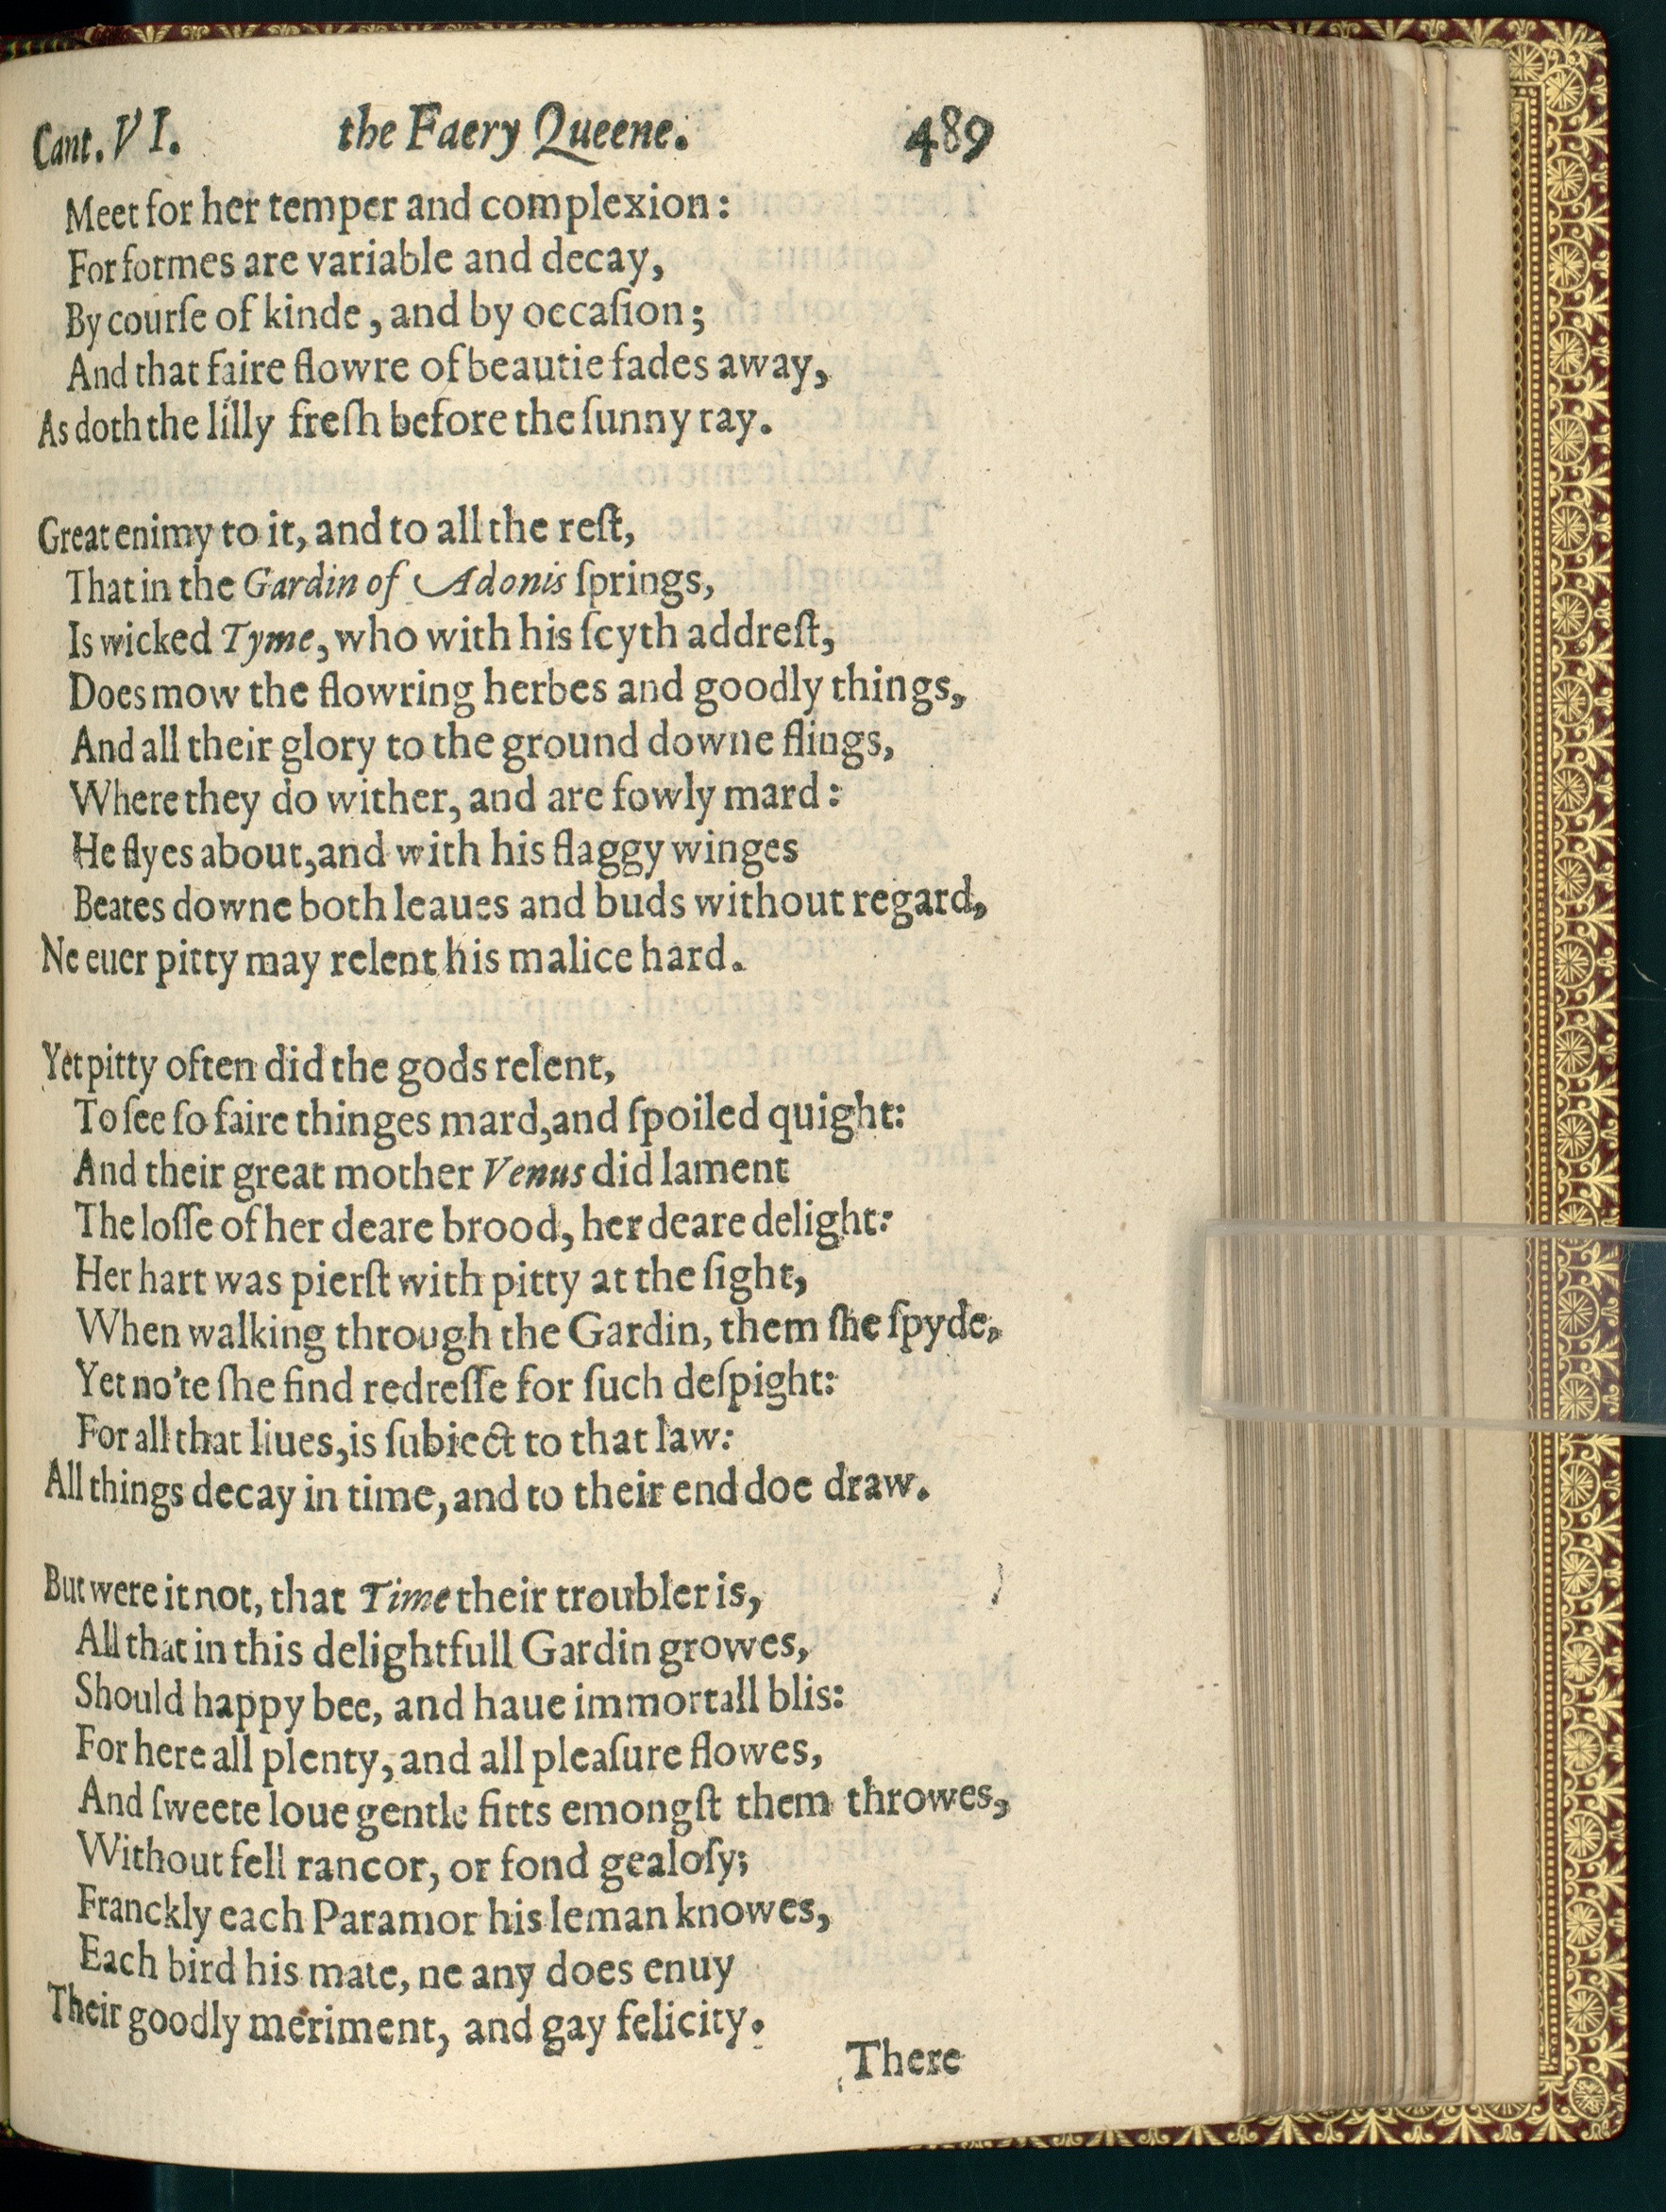 Cant. VI. the Faery Queene. 489
Meet for her temper and complexion:
For formes are variable and decay,
By courſe of kinde, and by occaſion;
And that faire flowre of beautie fades away,
As doth the lilly freſh before the ſunny ray.
Great enimy to it, and to all the reſt,
That in the Gardin of Adonis ſprings,
Is wicked Tyme, who with his ſcyth addreſt,
Does mow the flowring herbes and goodly things,
And all their glory to the ground downe flings,
Where they do wither, and are fowly mard:
He flyes about, and with his flaggy winges
Beates downe both leaues and buds without regard,
Ne euer pitty may relent his malice hard.
Yet pitty often did the gods relent,
To ſee ſo faire thinges mard, and ſpoiled quight:
And their great mother Venus did lament
The loſſe of her deare brood, her deare delight:
Her hart was pierſt with pitty at the ſight,
When walking through the Gardin, them ſhe ſpyde,
Yet no'te ſhe find redreſſe for ſuch deſpight:
For all that liues, is ſubiect to that law:
All things decay in time, and to their end doe draw.
But were it not, that Time their troubler is,
All that in this delightfull Gardin growes,
Should happy bee, and haue immortall blis:
For here all plenty, and all pleaſure flowes,
And ſweete loue gentle fitts emongſt them throwes,
Without fell rancor, or fond gealoſy;
Franckly each Paramor his leman knowes,
Each bird his mate, ne any does enuy
Their goodly meriment, and gay felicity.
There